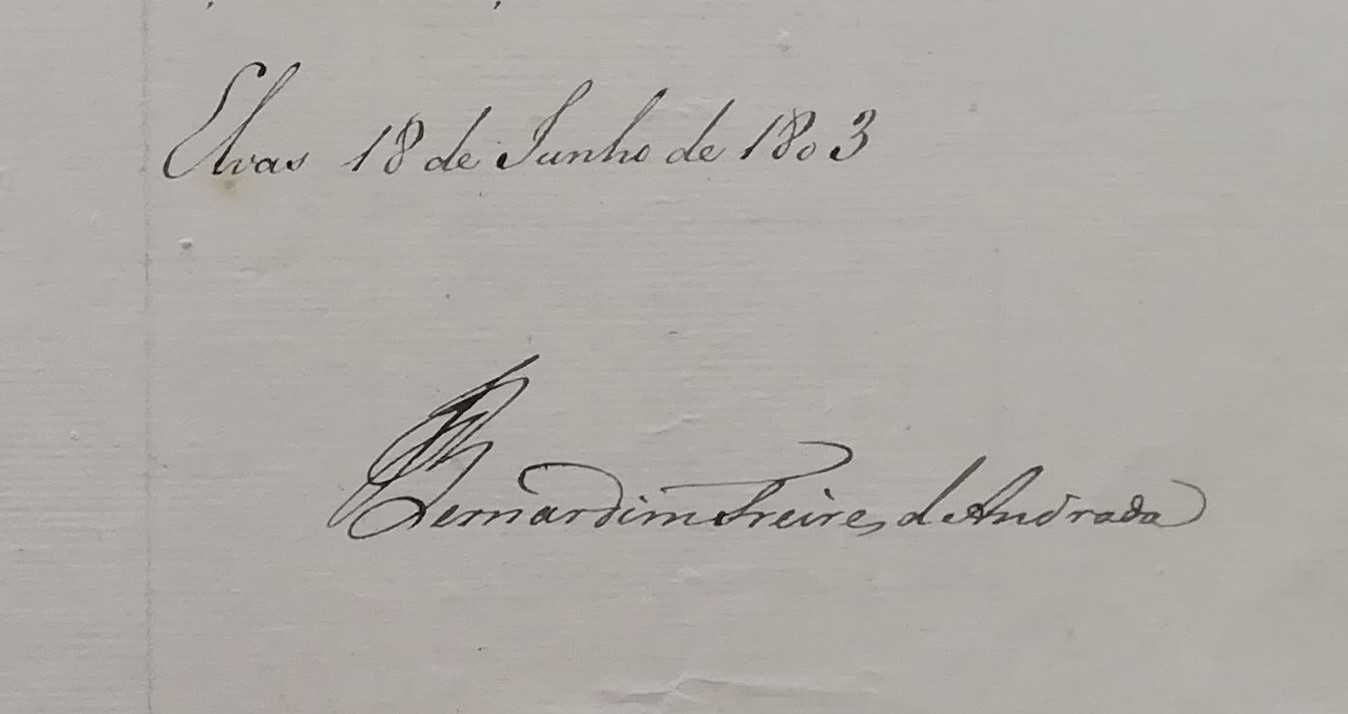 Elvas 18 de Junho de 1803
Bernardim Freire d'Andrada